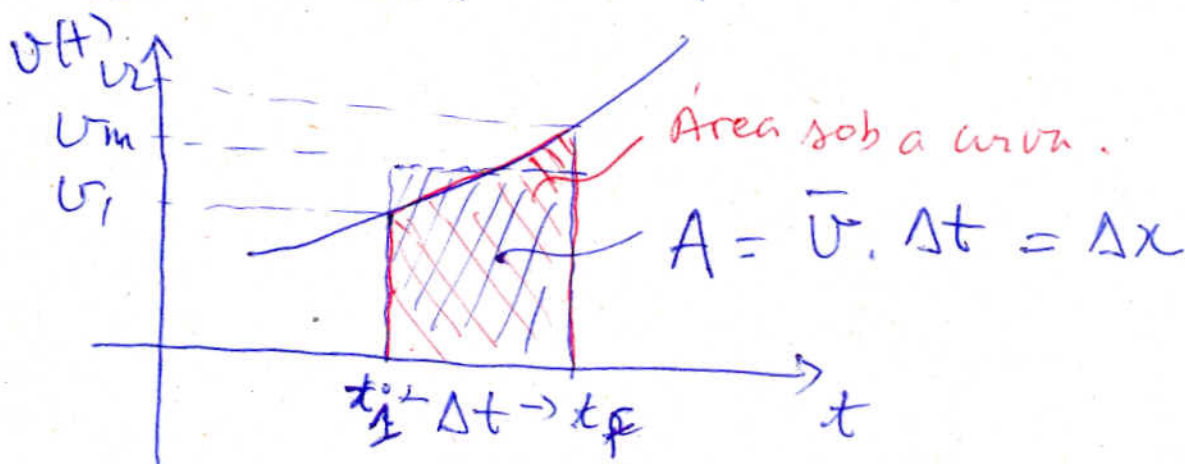 v(t)
v2
vm
v1
Área sob a curva.
A = v̄. Δt = Δx
←Δt→
t